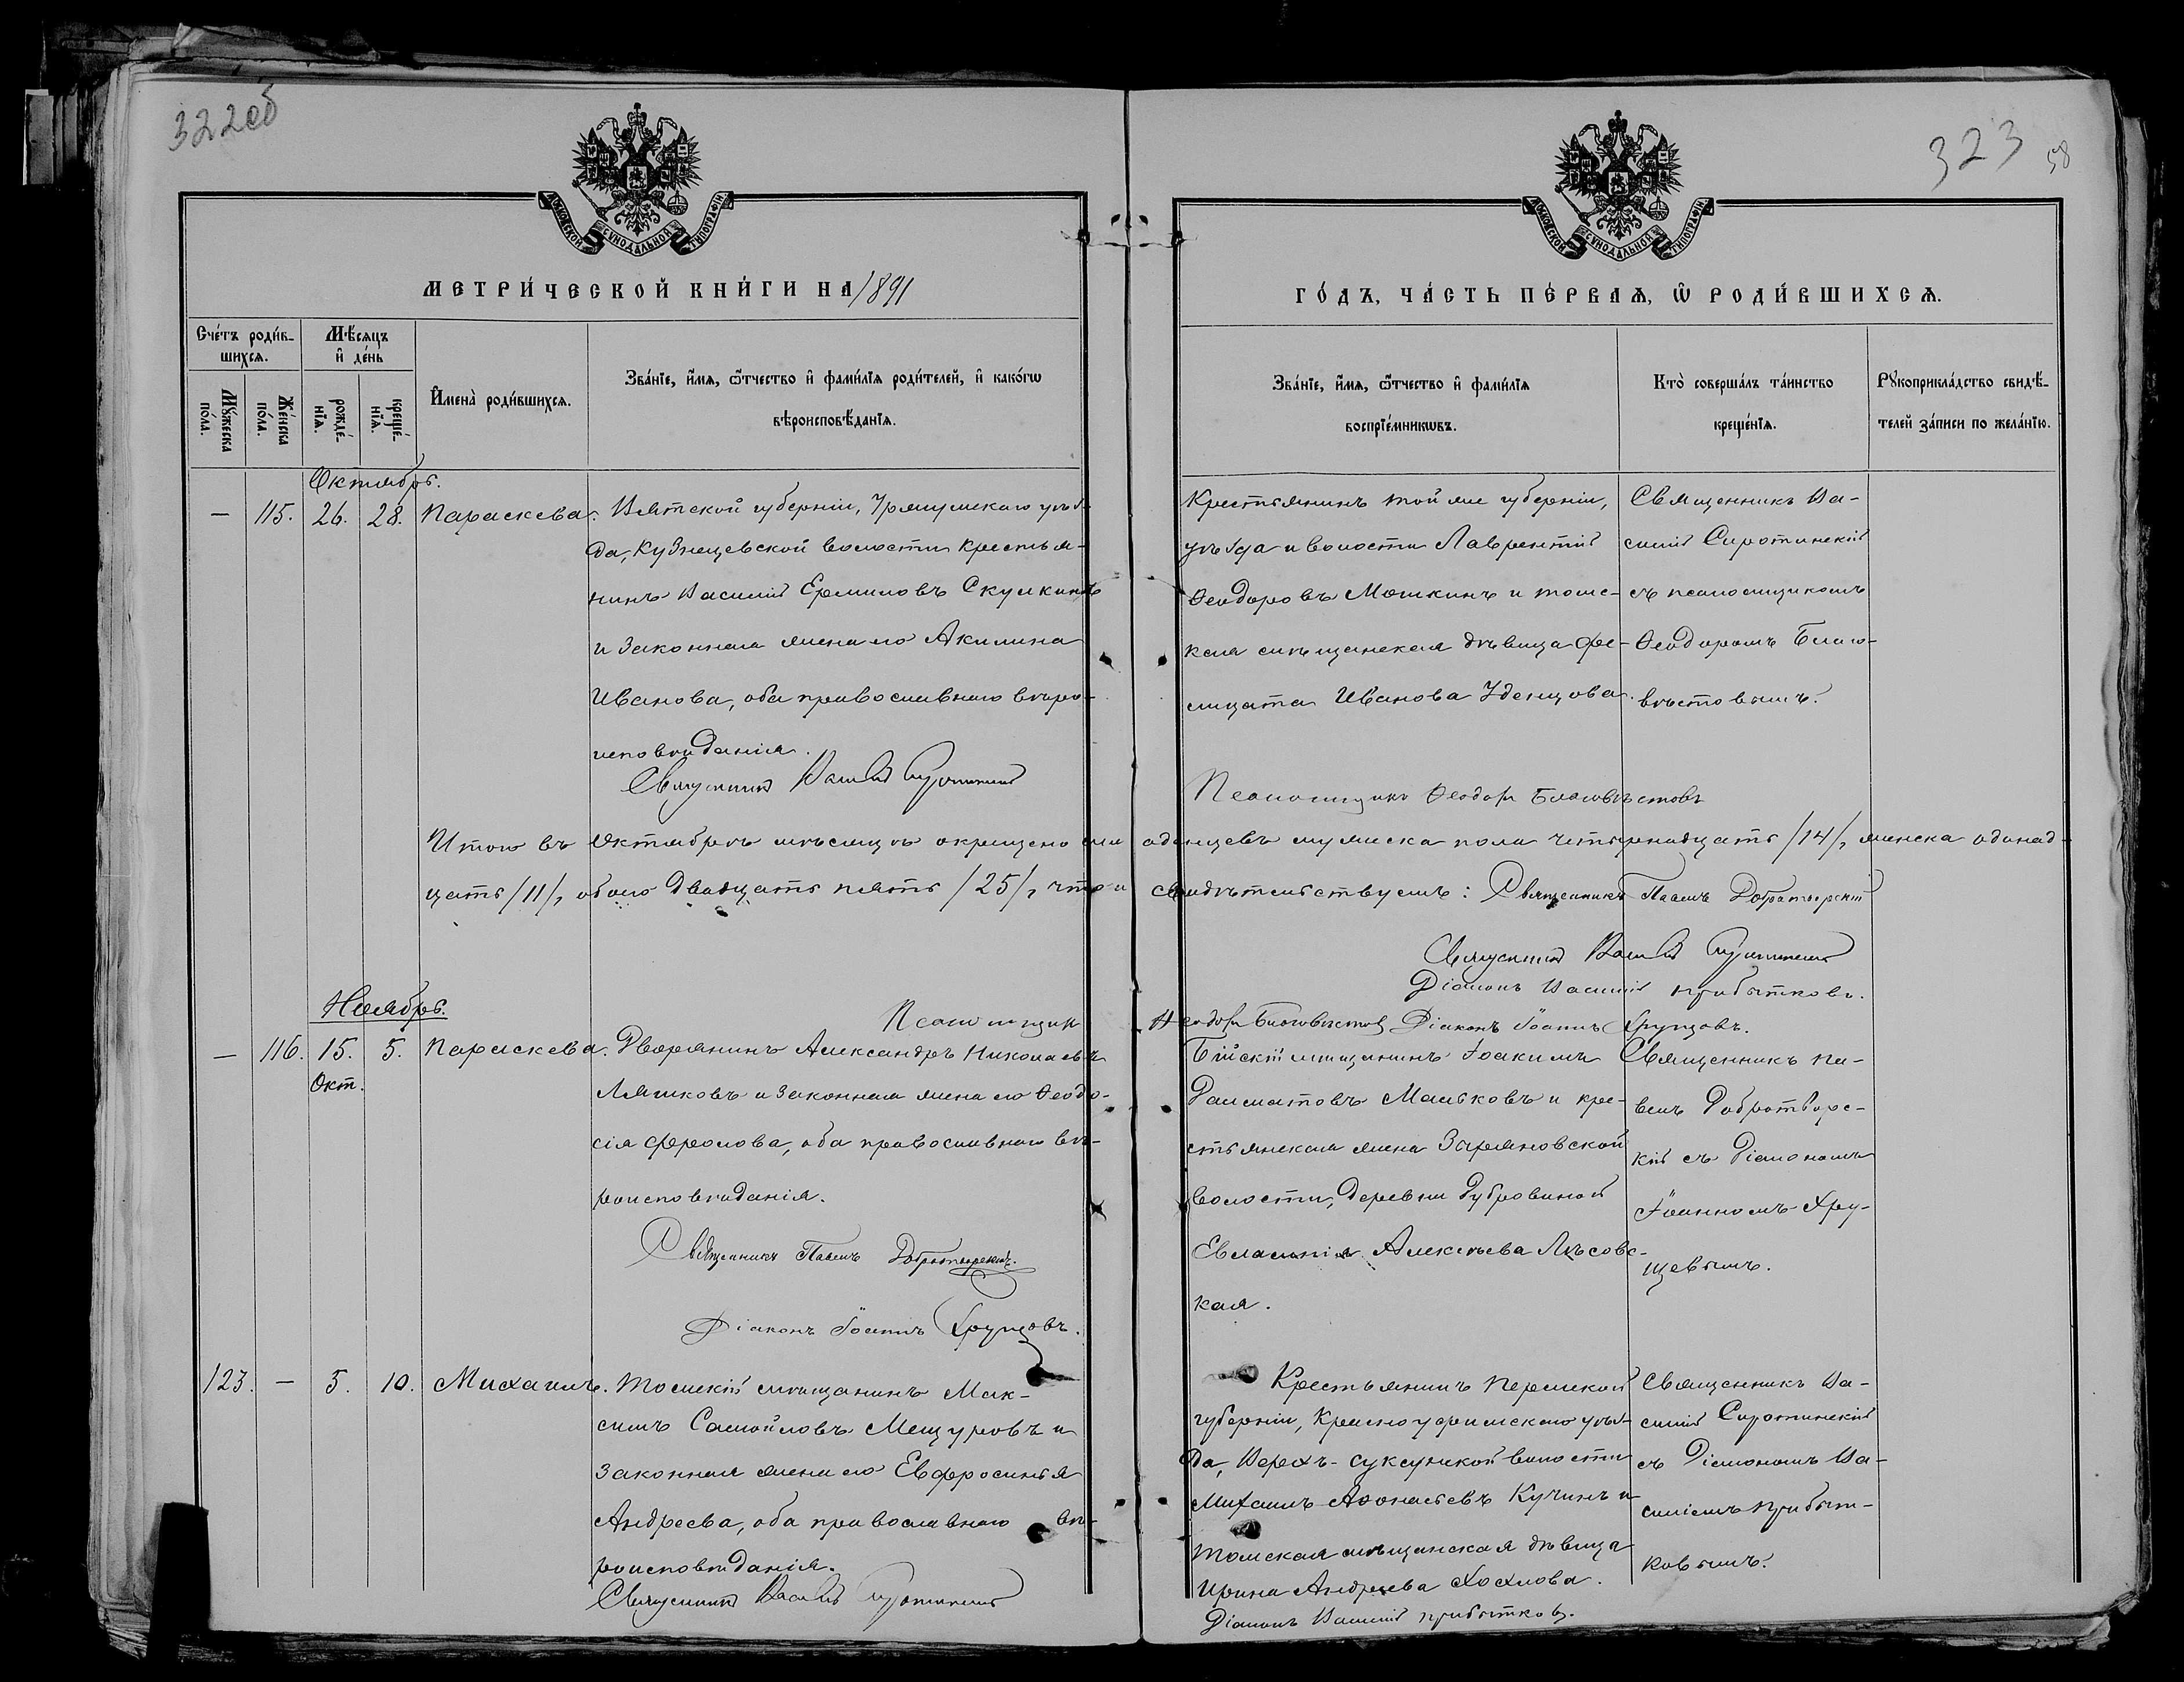 322 об
323
58
МОСКОВСКОЙ СѴНОДАЛЬНОЙ ТИПОГРАФІИ
МОСКОВСКОЙ СѴНОДАЛЬНОЙ ТИПОГРАФІИ
МЕТРИ́ЧЕСКОЙ КНИ́ГИ НА 1891
ГО́ДЪ, ЧА́СТЬ ПЕ́РВАѦ, Ѿ РОДИ́ВШИХСѦ.
Сче́тъ роди́в-
шихсѧ.
Мѣ́сѧцъ
и҆ де́нь
Мꙋ́жеска
по́ла.
Же́нска
по́ла.
рожде́-
нїѧ.
креще́-
нїѧ.
И҆мена̀ роди́вшихсѧ.
Зва́нїе, и҆́мѧ, ѻ҆́тчество и҆ фами́лїѧ роди́телей, и҆ како́гѡ
вѣроисповѣ́данїѧ.
Зва́нїе, и҆́мѧ, ѻ҆́тчество и҆ фами́лїѧ
воспрїе́мникѡвъ.
Кто̀ соверша́лъ та́инство
креще́нїѧ.
Рꙋкоприкла́дство свидѣ́-
телей за́писи по жела́нїю.
Октябрь.
— 115. 26. 28. Параскева. Вятской губерніи, Уржумскаго уѣз-
да, Кузнецевской волости крестья-
нинъ Василій Ермиловъ Скулкинъ
и законная жена его Акилина
Иванова, оба православнаго вѣро-
исповѣданія.
Священникъ Василій Сиротинскій
Крестьянинъ той же губерніи,
уѣзда и волости Лаврентій
Ѳеодоровъ Мошкинъ и томс-
кая мѣщанская дѣвица Фе-
лицата Иванова Уденцова.
Священникъ Ва-
силій Сиротинскій
съ псаломщикомъ
Ѳеодоромъ Благо-
вѣстовымъ.
Псаломщикъ Ѳеодоръ Благовѣстовъ
Итого въ Октябрѣ мѣсяцѣ окрещено младенцевъ мужеска пола четырнадцать /14/, женска одинад-
цать /11/, обоего двадцать пять /25/, что и свидѣтельствуемъ: Священникъ Павелъ Добротворскій
Священникъ Василій Сиротинскій
Діаконъ Василій Прибытковъ.
Псаломщикъ Ѳеодоръ Благовѣстовъ Діаконъ Іоаннъ Хрущовъ.
Ноябрь.
— 116. 15. 5. Параскева. Дворянинъ Александръ Николаевъ
Окт.
Ляшковъ и законная жена его Ѳеодо-
сія Фролова, оба православнаго вѣ-
роисповѣданія.
Священникъ Павелъ Добротворскій.
Діаконъ Іоаннъ Хрущовъ.
Бійскій мѣщанинъ Іоакимъ
Далматовъ Мальковъ и кре-
стьянская жена Зыряновской
волости, деревни Дубровиной
Евлампія Алексѣева Лѣсовс-
кая.
Священникъ Па-
велъ Добротворс-
кій съ Діакономъ
Іоанномъ Хру-
щевымъ.
123. — 5. 10. Михаилъ. Томскій мѣщанинъ Мак-
симъ Самойловъ Мещуровъ и
законная жена его Евфросинья
Андреева, оба православнаго вѣ-
роисповѣданія.
Священникъ Василій Сиротинскій
Крестьянинъ Пермской
губерніи, Красноуфимскаго уѣз-
да, Верхъ-Суксунской волости
Михаилъ Аѳонасьевъ Кучинъ и
томская мѣщанская дѣвица
Ирина Андреева Хохлова.
Діаконъ Василій Прибытковъ.
Священникъ Ва-
силій Сиротинскій
съ Діакономъ Ва-
силіемъ Прибыт-
ковымъ.